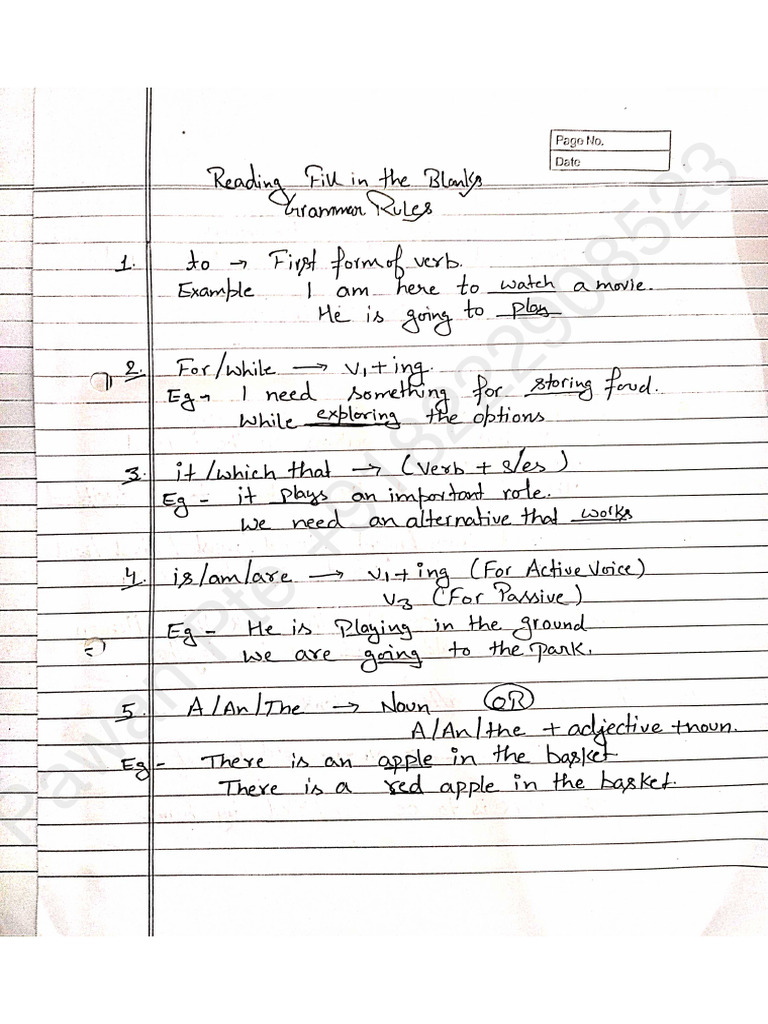 Page No.
Date
Reading Fill in the Blanks
Grammer Rules
1. to → First form of verb.
Example I am here to watch a movie.
He is going to play
2. For/while → V1 + ing.
Eg → I need something for storing food.
While exploring the options
3. it/which that → (Verb + s/es)
Eg - it plays an important role.
We need an alternative that works
4. is/am/are → V1 + ing (For Active Voice)
V3 (For Passive)
Eg - He is Playing in the ground
We are going to the park.
5. A/An/The → Noun OR
A/An/the + adjective + noun.
Eg - There is an apple in the basket
There is a red apple in the basket.
Pawan Pte +918222908523